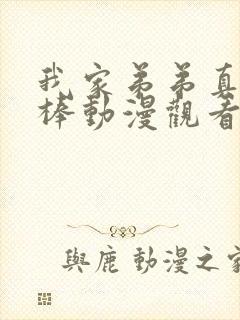 我家弟弟真
棒動漫觀看
與鹿 動漫之家